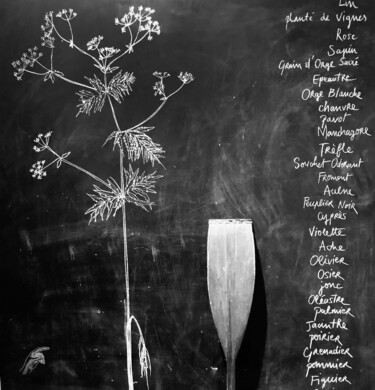 Lin
planté de vignes
Rose
Sapin
Grain d'Orge Sacré
Epeautre
Orge Blanche
chanvre
pavot
Mandragore
Trèfle
Souchet Odorant
Froment
Aulne
Peuplier Noir
Cyprès
Violette
Ache
Olivier
Osier
jonc
Oléastre
palmier
Jacinthe
poirier
Grenadier
pommier
Figuier